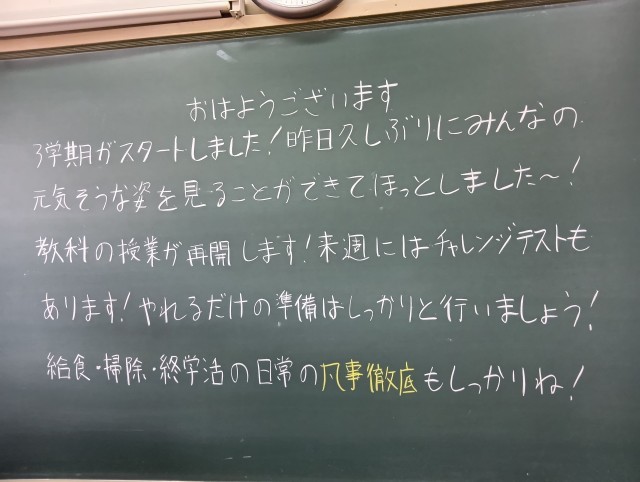 おはようございます
3学期がスタートしました！昨日久しぶりにみんなの
元気そうな姿を見ることができてほっとしました～！
教科の授業が再開します！来週にはチャレンジテストも
あります！やれるだけの準備はしっかりと行いましょう！
給食・掃除・終学活の日常の凡事徹底もしっかりね！